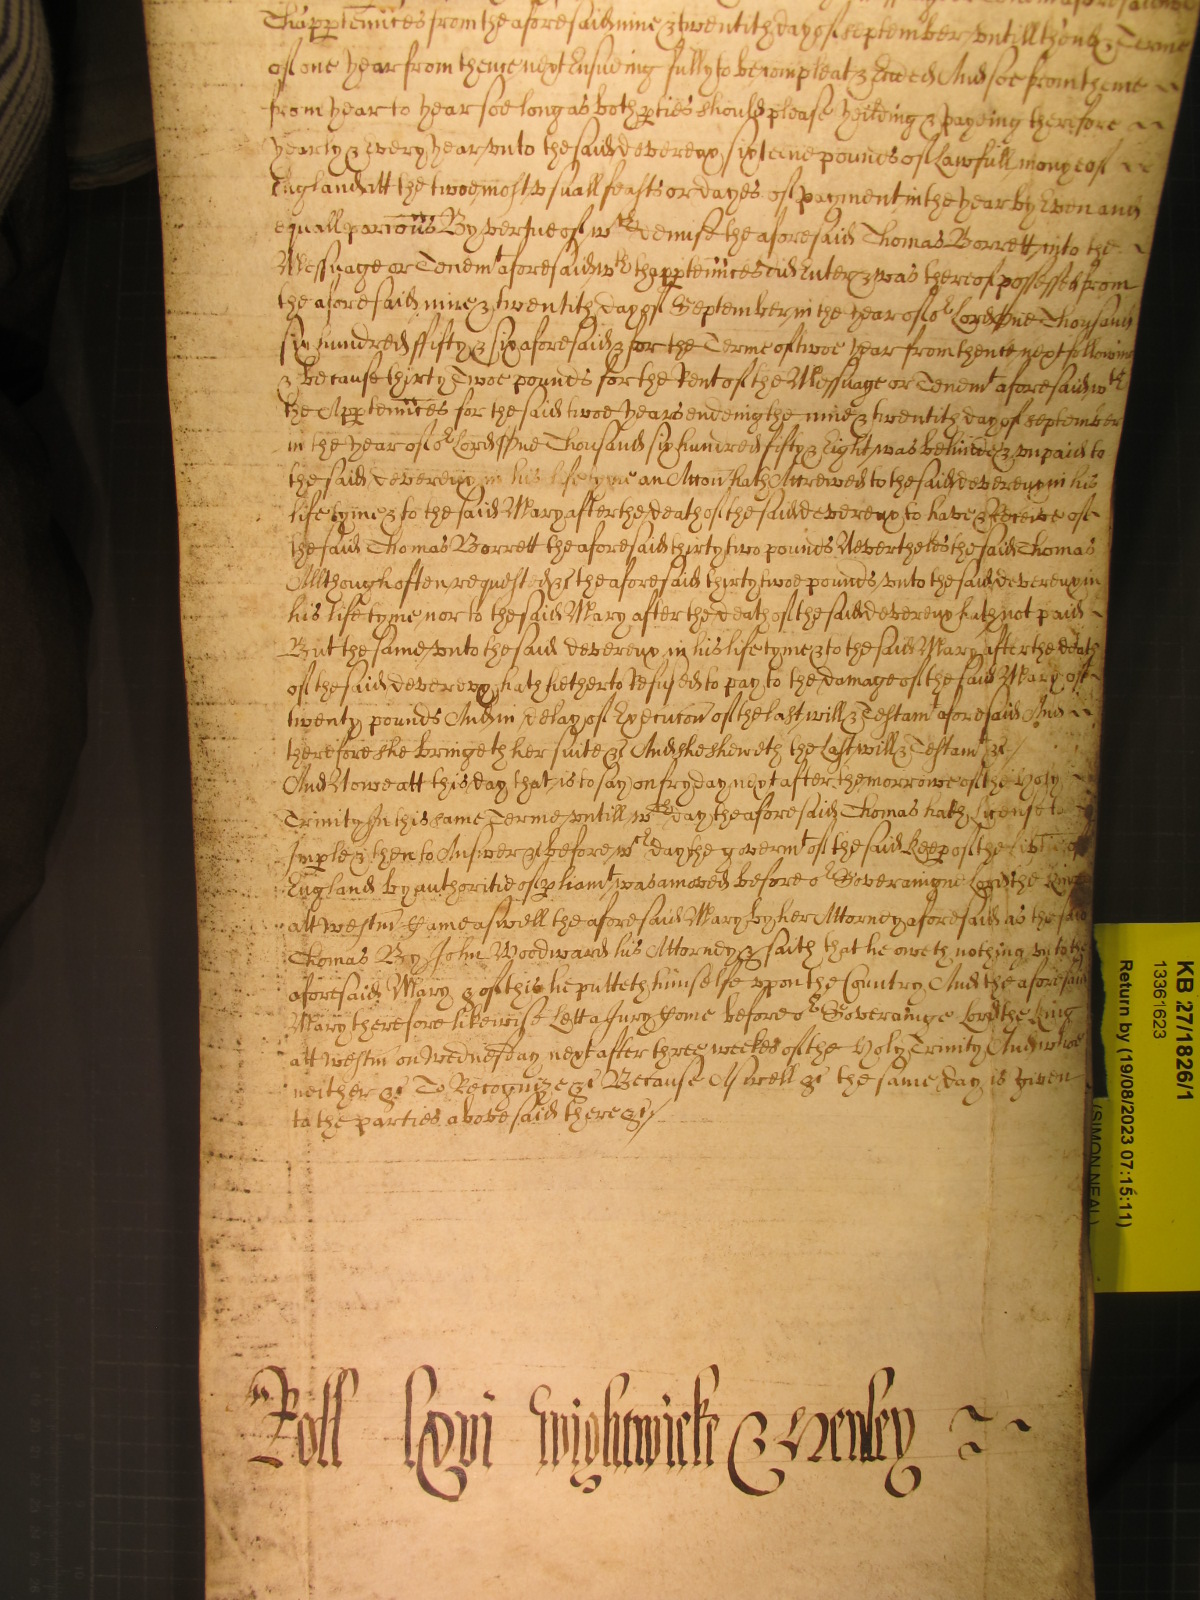 Thapptennces from the aforesaid nine & twentith day of September untill the end & Terme
of one year from thence next Ensueing fully to be compleat & Ended And soe from thence
from year to year soe long as both pties should please yeilding & payeing therefore
yearly & every year unto the said devereux sixteene pounds of Lawfull monye of
England att the twoe most usuall feasts or dayes of payment in the year by Even and
equall parcons By vertue of wch demise the aforesaid Thomas Borrett into the
Messuage or Tenemt aforesaid wth thapptennces did Enter & was thereof possessed from
the aforesaid nine & twentith day of September in the year of or Lord One Thousand
six hundred fifty & six aforesaid & for the Terme of twoe year from thence next following
& because thirty Twoe pounds for the Rent of the Messuage or Tenemt aforesaid wth
the Apptennces for the said twoe years endeing the nine & twentith day of September
in the year of or Lord One Thousand six hundred fifty & Eight was behinde & unpaid to
the said devereux in his life tyme an Accon hath Accrewed to the said devereux in his
life tyme & to the said Mary after the death of the said devereux to have & Receive of
the said Thomas Borrett the aforesaid thirty two pounds Neverthelesthe said Thomas
Allthough often requested &c the aforesaid thirty twoe pounds unto the said devereux in
his life tyme nor to the said Mary after the death of the said devereux hath not paid
But the same unto the said devereux in his life tyme & to the said Mary after the death
of the said devereux hath hetherto Refused to pay to the damage of the said Mary of
twenty pounds And in delay of Execucon of the last will & Testamt aforesaid And
therefore she bringeth her suite &c And she sheweth the Last will & Testamt &c
And Nowe att this day that is to say on fryday next after the morrowe of the Holy
Trinity In this same Terme untill wch day the aforesaid Thomas hath License to
Imple & then to Answer &c before wch day the governmt of the said Keepers of the
England by authoritie of pliamt was amoved before or Soveraigne Lord the King
att westm Came aswell the aforesaid Mary by her Attorney aforesaid as the said
Thomas By John Woodward his Attorney & saith that he oweth nothing unto the
aforesaid Mary & of this he putteth himselfe upon the Country And the aforesaid
Mary therefore likewise Lett a Jury Come before or Soveraigne Lord the King
att Westm on Wednesday next after three weekes of the Holy Trinity And whoe
neither &c To Recognize &c Because Aswell &c the same day is given
to the parties abovesaid there &c
Roll lxvi Wightwicke & Henley
KB 27/1826/1
13361623
Return by (19/08/2023 07:15:11)
(SIMON NEAL)